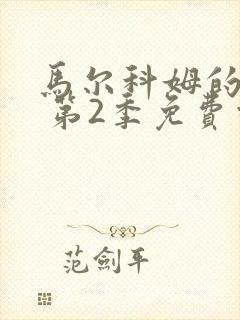 馬尔科姆的
第2季免費
范劍平